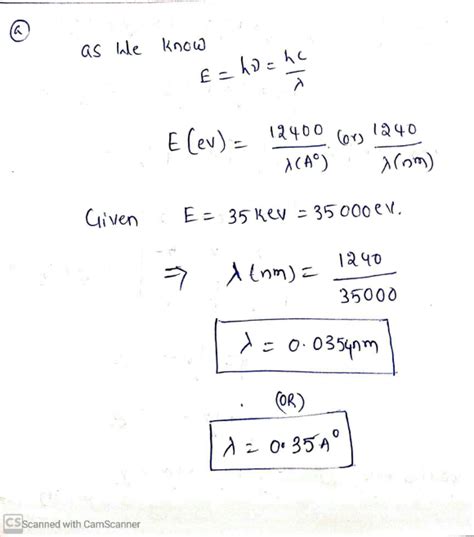 (a)
as We know
E = hν = hc/λ
E (ev) = 12400/λ(A°) (or) 1240/λ(nm)
Given E = 35 Kev = 35000 ev.
⇒ λ (nm) = 1240/35000
λ = 0.0354nm
(OR)
λ = 0.35 A°
CS Scanned with CamScanner